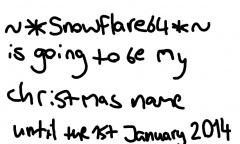 ~*Snowflare64*~
is going to be my
christmas name
until the 1st January 2014